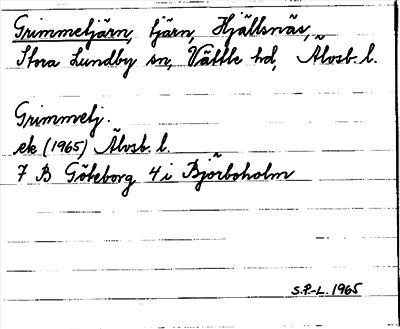 Grimmetjärn, tjärn, Hjällsnäs,
Stora Lundby sn, Vättle hd, Älvsb. l.
Grimmetj.
ek (1965) Älvsb. l.
7 B Göteborg 4 i Björboholm
S.P.-L. 1965